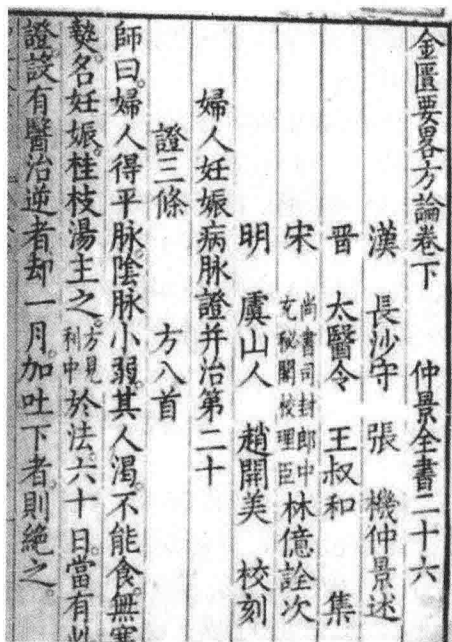 金匱要畧方論卷下　仲景全書二十六
漢　長沙守　張　機仲景述
晋　太醫令　王叔和　集
宋　尚書司封郎中充秘閣校理臣　林億詮次
明　虞山人　趙開美　校刻
婦人妊娠病脉證并治第二十
證三條　方八首
師曰。婦人得平脉。陰脉小弱。其人渴。不能食。無寒
熱。名妊娠。桂枝湯主之。方見利中於法。六十日。當有此
證。設有醫治逆者。却一月。加吐下者。則絶之。